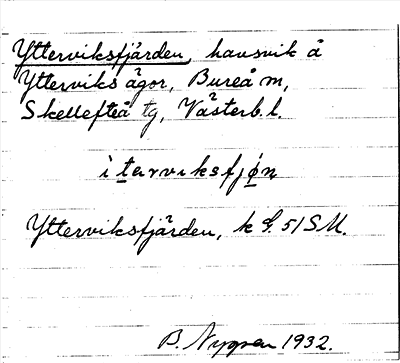 Ytterviksfjärden, havsvik å
Ytterviks ägor, Bureå sn,
Skellefteå tg, Västerb. l.
ìtərviksfjọ́n
Ytterviksfjärden, k G. 51 SM.
B. Nygren 1932.